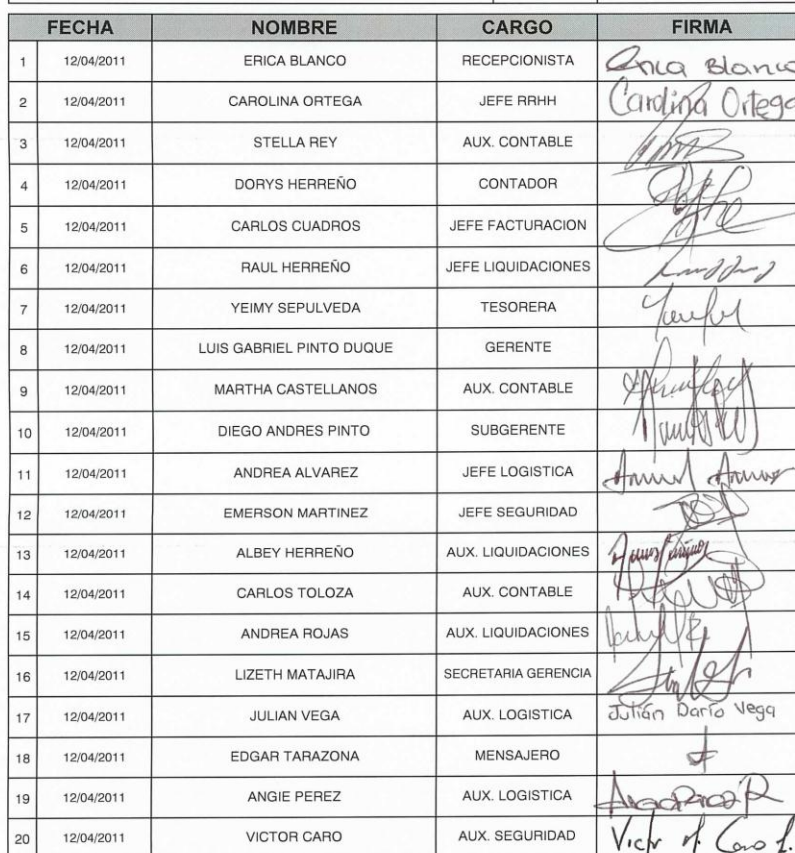 FECHA NOMBRE CARGO FIRMA
1 12/04/2011 ERICA BLANCO RECEPCIONISTA Erica Blanco
2 12/04/2011 CAROLINA ORTEGA JEFE RRHH Carolina Ortega
3 12/04/2011 STELLA REY AUX. CONTABLE
4 12/04/2011 DORYS HERREÑO CONTADOR
5 12/04/2011 CARLOS CUADROS JEFE FACTURACION
6 12/04/2011 RAUL HERREÑO JEFE LIQUIDACIONES
7 12/04/2011 YEIMY SEPULVEDA TESORERA
8 12/04/2011 LUIS GABRIEL PINTO DUQUE GERENTE
9 12/04/2011 MARTHA CASTELLANOS AUX. CONTABLE
10 12/04/2011 DIEGO ANDRES PINTO SUBGERENTE
11 12/04/2011 ANDREA ALVAREZ JEFE LOGISTICA
12 12/04/2011 EMERSON MARTINEZ JEFE SEGURIDAD
13 12/04/2011 ALBEY HERREÑO AUX. LIQUIDACIONES
14 12/04/2011 CARLOS TOLOZA AUX. CONTABLE
15 12/04/2011 ANDREA ROJAS AUX. LIQUIDACIONES
16 12/04/2011 LIZETH MATAJIRA SECRETARIA GERENCIA
17 12/04/2011 JULIAN VEGA AUX. LOGISTICA Julián Darío Vega
18 12/04/2011 EDGAR TARAZONA MENSAJERO
19 12/04/2011 ANGIE PEREZ AUX. LOGISTICA
20 12/04/2011 VICTOR CARO AUX. SEGURIDAD Victor M. Caro